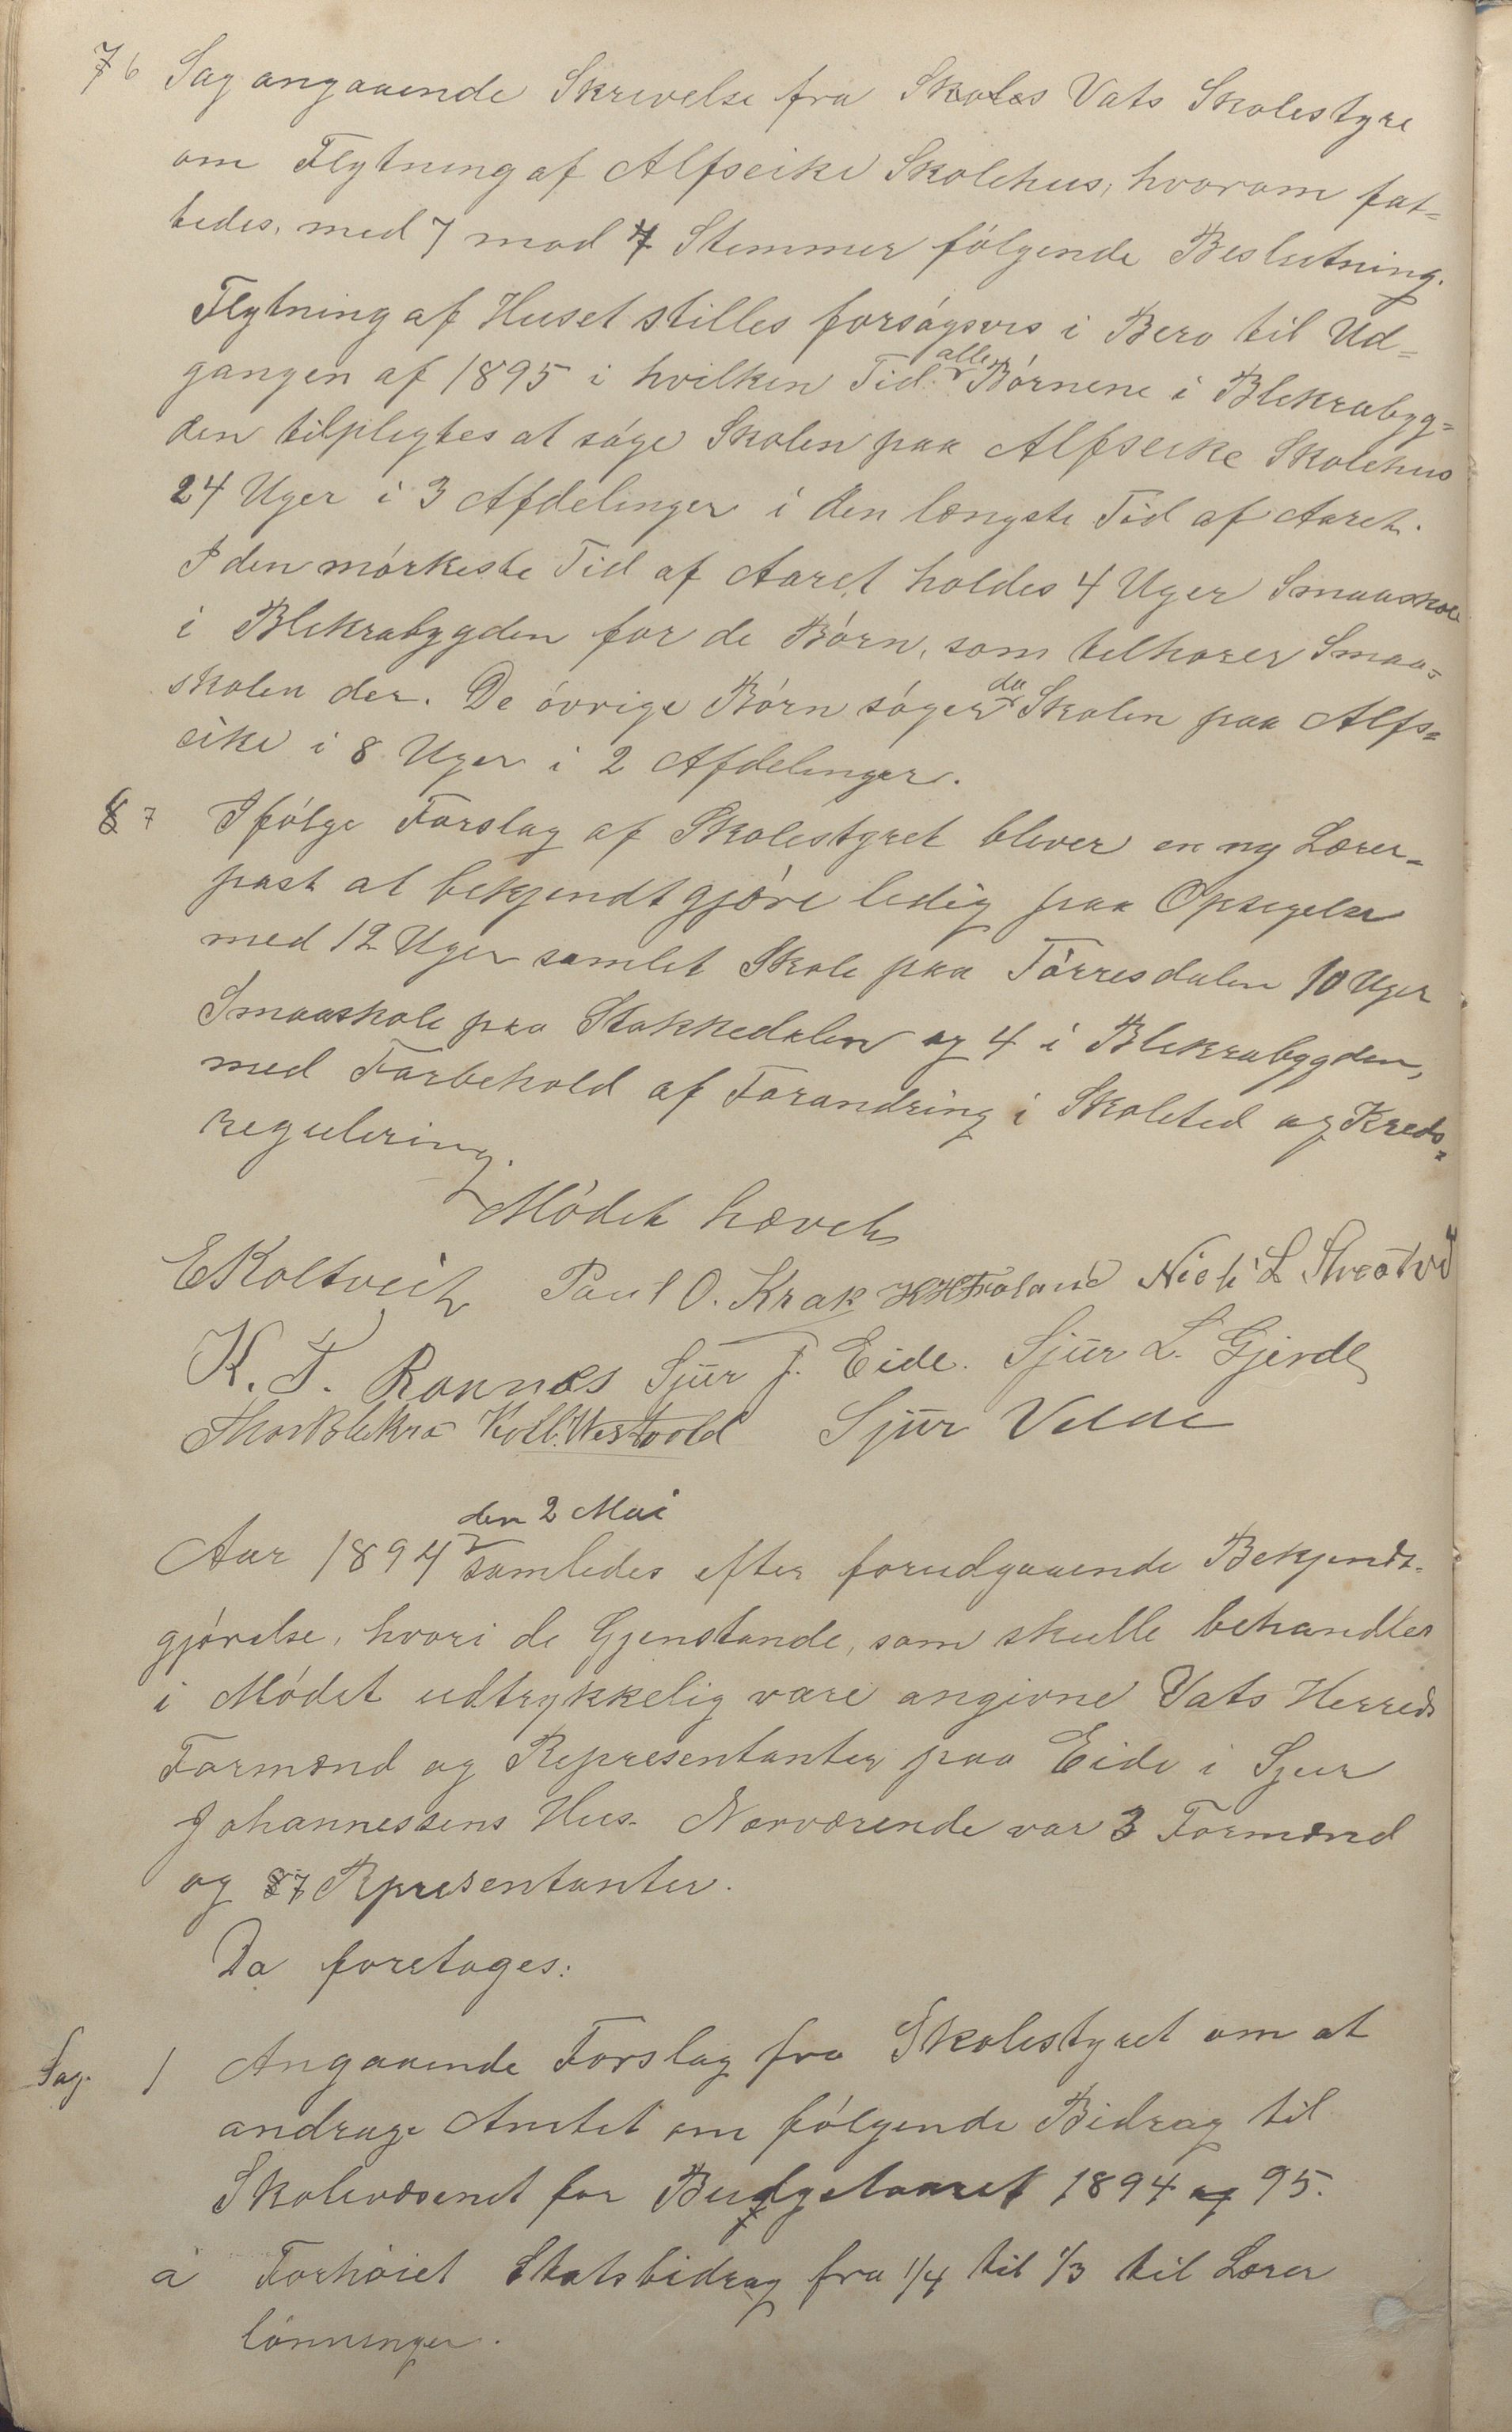 7 6 Sag angaaende Skrivelse fra Skoles Vats Skolestyre
om Flytning af Alfseike Skolehus, hvorom fat=
tedes, med 7 mod 4 Stemmer følgende Beslutning.
Flytning af Huset stilles forsøgsvis i Bero til Ud=
gangen af 1895 i hvilken Tid alle Børnene i Blikrabyg=
den tilpligtes at søge Skolen paa Alfseike Skolehus
24 Uger i 3 Afdelinger i den længste Tid af Aaret.
I den mørkeste Tid af Aaret holdes 4 Uger Smaaskole
i Blikrabygden for de Børn, som tilhører Smaa=
skolen der. De øvrige Børn søger da Skolen paa Alfs=
eike i 8 Uger i 2 Afdelinger.
8 7 Ifølge Forslag af Skolestyret bliver en ny Lærer=
post at bekjendtgjøre ledig paa Opsigelse
med 12 Uger samlet Skole paa Tørresdalen 10 Uger
Smaaskole paa Stakkedalen og 4 i Blikrabygden,
med Forbehold af Forandring i Skoletid og Kreds=
regulering.
Mødet hævet
E Koltveit Paul O. Krak H H Froland Niels L
K. T. Rannes Sjur J. Eide. Sjur L. Gjerde
Thor Blikra Koll. Westvold Sjur Velde
den 2 Mai
Aar 1894 samledes efter forudgaaende Bekjendt=
gjørelse, hvori de Gjenstande, som skulle behandles
i Mødet udtrykkelig vare angivne Vats Herreds
Formænd og Repræsentanter paa Eide i Sjur
Johannessens Hus. Nærværende var 3 Formænd
og 8 7 Rpresentanter.
Da foretoges:
Sag. 1 Angaaende Forslag fra Skolestyret om at
andrage Amtet om følgende Bidrag til
Skolevæsenet for Budgetaaret 1894 og 95.
a Forhøiet Statsbidrag fra 1/4 til 1/3 til Lærer
lønninger.